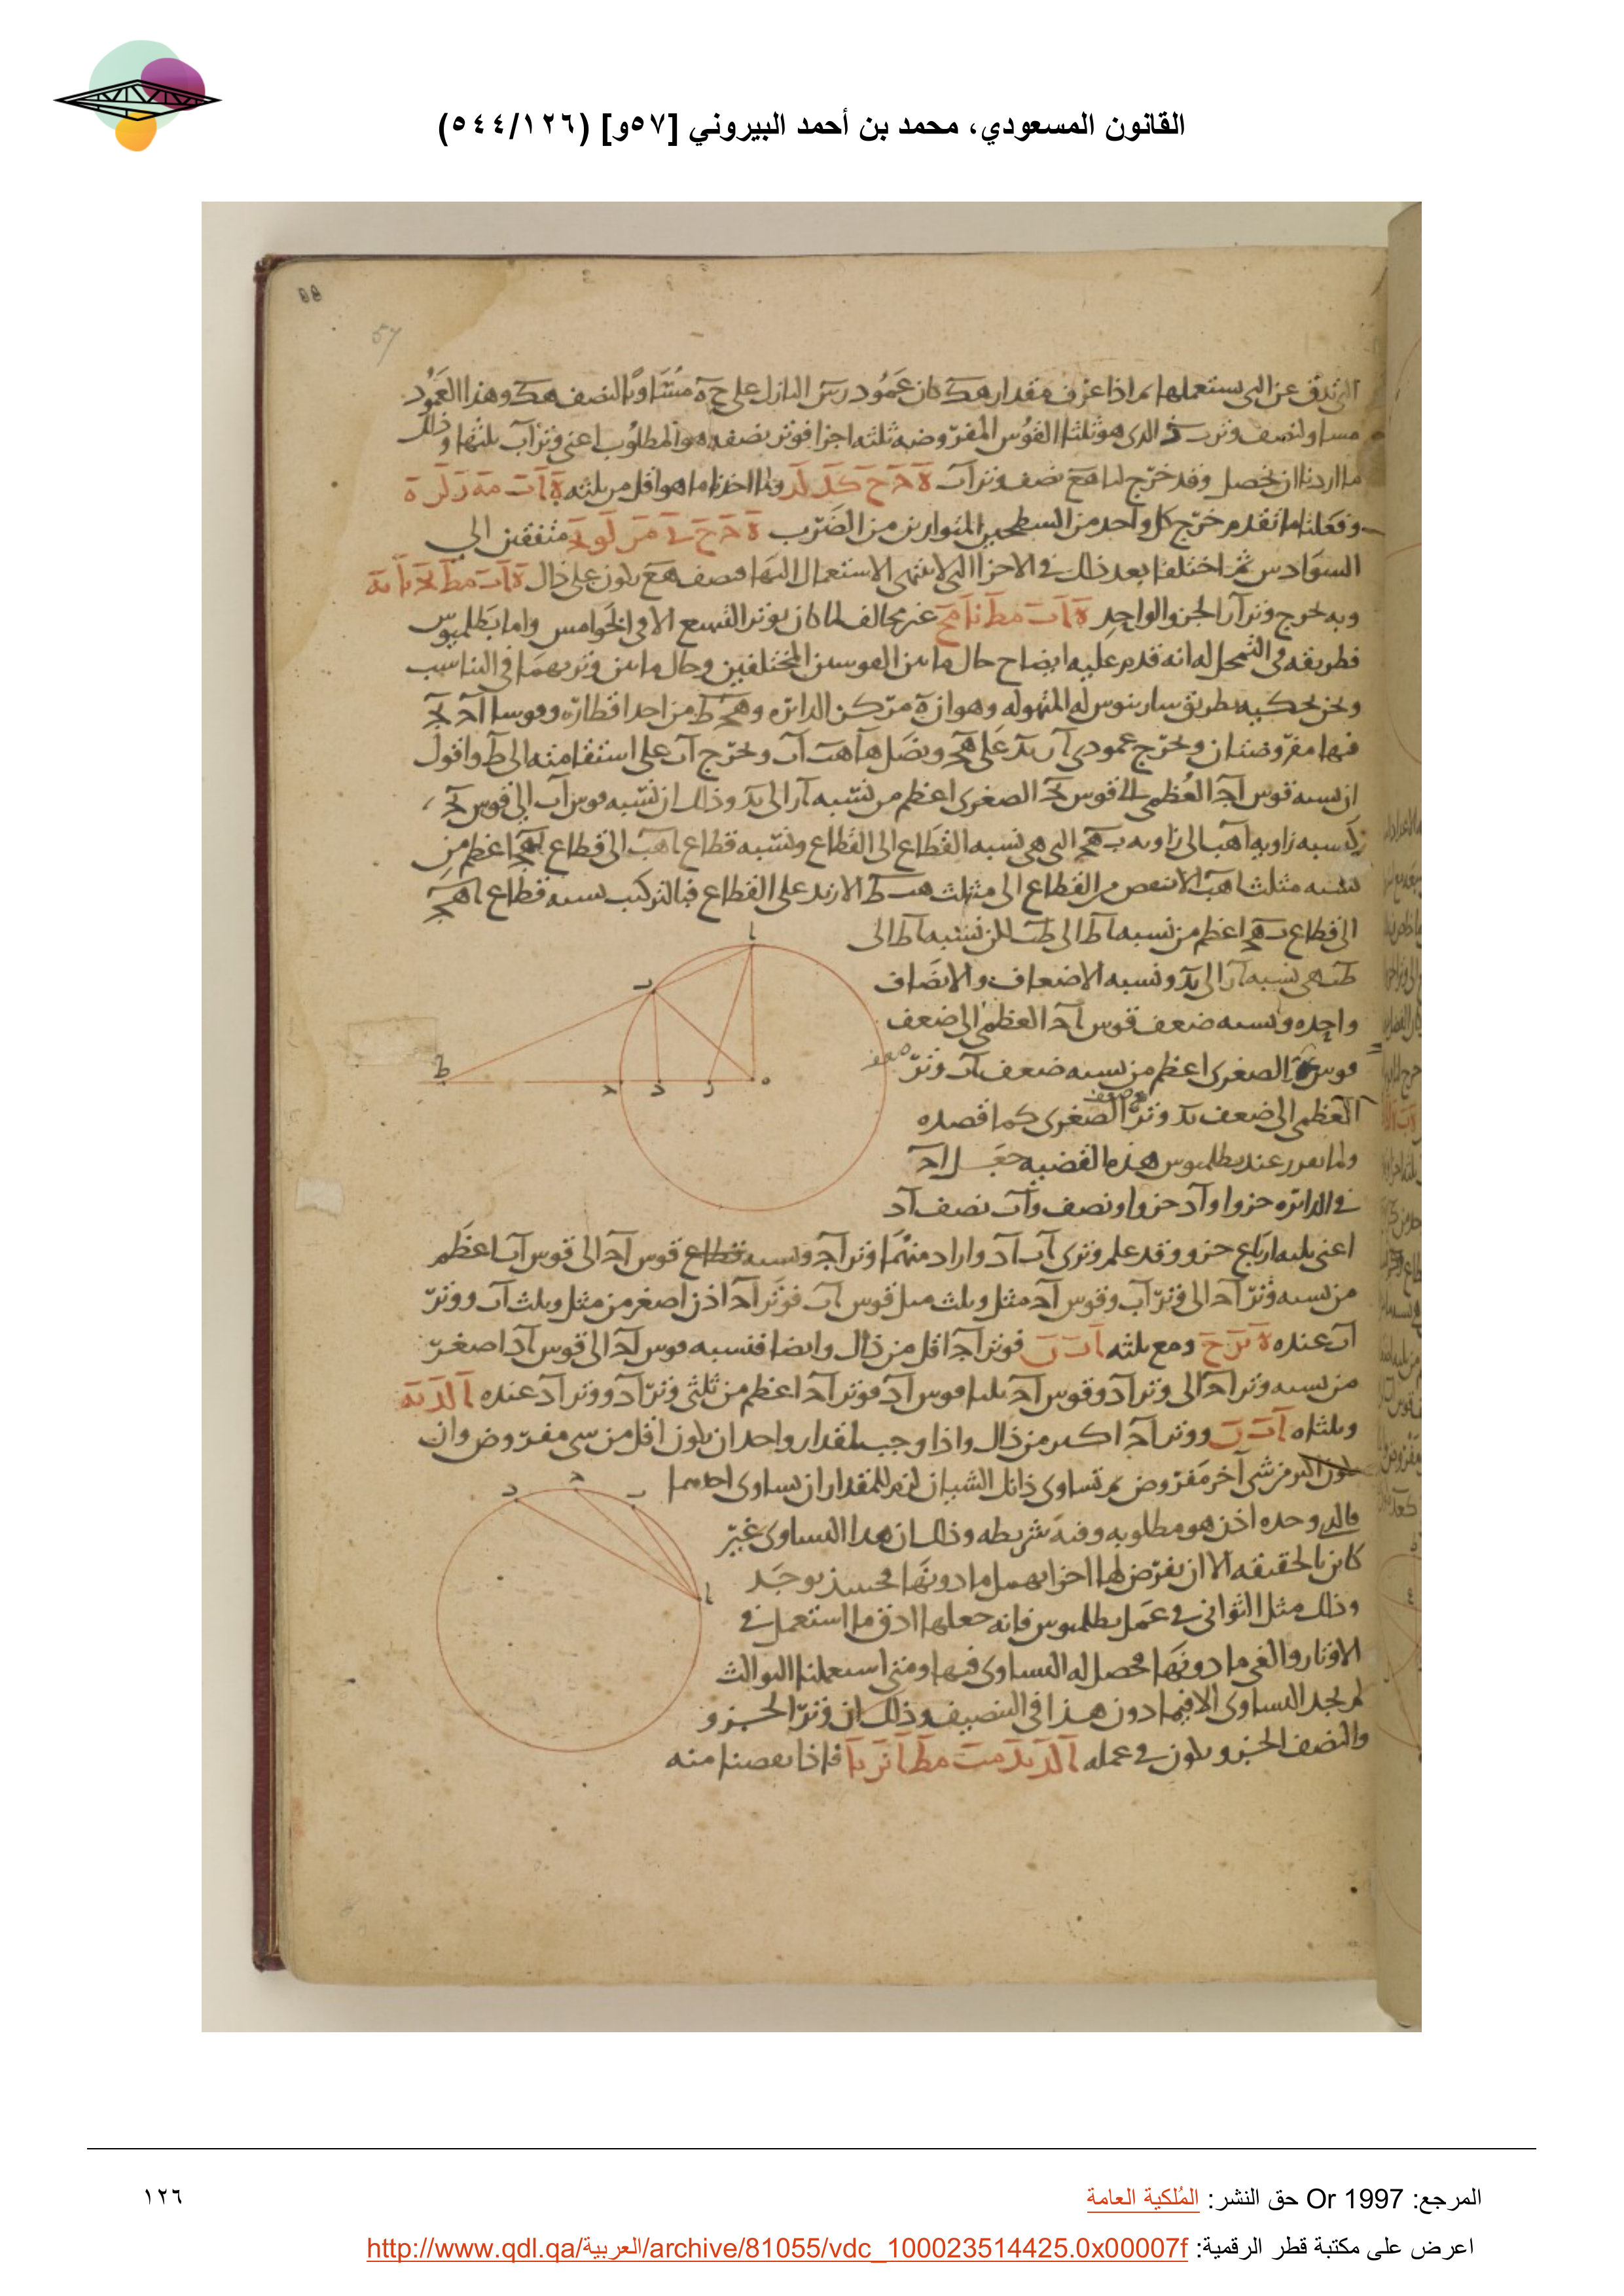 القانون المسعودي، محمد بن أحمد البيروني [٥٧و] (٥٤٤/١٢٦)
57
التي تدق عن التي يستعملها ثم اذا عرف مقدار هك كان عمود رس النازل على حه مساويا لنصف هك وهذا العمود
مساو لنصف وتر الذي هو ثلثا القوس المفروضه ثلثه اجزا فوتر نصفه هو المطلوب اعني وتر اب ثلثها وذلك
ما اردنا ان نحصل وقد خرج لنا مع نصف وتر اب
وفعلنا ما تقدم خرج كل واحد من السطحين المتوازيين من الضرب متفقين الى
السوادس ثم اختلفا بعد ذلك في الاجزا التي لا ينتهي الاستعمال اليها فنصف هع يكون على ذلك
وبه خرج وتر آر الجزو الواحد غير مخالف لما كان بوتر التسع الا في الخوامس واما بطلميوس
فطريقه في التمحل له انه قدم عليه ايضاح حال ما بين القوسين المختلفين وحال ما بين وتريهما في التناسب
ونحن نحكيه بطريق سارينوس له المتهوله وهو ان ه مركز الدائره و هحط من احد اقطاره وقوسا اح بح
فيها مفروضتان ونخرج عمودي ار بد على هح ونصل ها هب اب ونخرج اب على استقامته الى ط واقول
ان نسبه قوس اح العظمى الى قوس بح الصغرى اعظم من نسبه ار الى بد وذلك ان نسبه قوس اب الى قوس بح
كنسبه زاويه اهب الى زاويه بهح التي هي نسبه القطاع الى القطاع ونسبه قطاع اهب الى قطاع بهح اعظم من
نسبه مثلث اهب الانقص من القطاع الى مثلث هبط الازيد على القطاع فبالتركيب نسبه قطاع اهح
الى قطاع بهح اعظم من نسبه اط الى طب لكن نسبه اط الى
طب هي نسبه ار الى بد ونسبه الاضعاف والانصاف
واحده ونسبه ضعف قوس اح العظمى الى ضعف
قوس بح الصغرى اعظم من نسبه ضعف ار وتر ضعف
العظمى الى ضعف بد وتر ضعف الصغرى كما قصده
ولما تقرر عند بطلميوس هذه القضيه جعل اح
في الدائره جزوا واد جزوا ونصف واب نصف اد
اعني ثلثه ارباع جزو وقد علم وتري اب اد واراد منهما وتر اح ونسبه قطاع قوس اح الى قوس اب اعظم
من نسبه وتر اح الى وتر اب وقوس اح مثل وثلث مثل قوس اب فوتر اح اذن اصغر من مثل وثلث اب ووتر
اب عنده ومع ثلثه فوتر اح اقل من ذلك وايضا فنسبه قوس اح الى قوس اد اصغر
من نسبه وتر اح الى وتر اد وقوس اح ثلثا قوس اد فوتر اح اعظم من ثلثي وتر اد ووتر اد عنده
وثلثاه ووتر اح اكبر من ذلك واذا وجب لمقدار واحد ان يكون اقل من شي مفروض وان
يكون اكبر من شي آخر مفروض ثم تساوى ذانك الشيان لزم للمقدار ان يساوي احدهما
فالد وحده اذن هو مطلوبه وفيه شريطه وذلك ان هذا التساوي غير
كائن بالحقيقه الا ان يفرض لها اجزا يهمل ما دونها فحينئذ يوجد
وذلك مثل الثواني في عمل بطلميوس فانه جعلها ادق ما استعمل في
الاوتار والغى ما دونها فحصل له التساوي فيها ومتى استعملنا الثوالث
لم يجد التساوي الا فيما دون هذا في التنصيف وذلك ان وتر الجزو
والنصف الجزو يكون في عمله فاذا نقصنا منه
المرجع: Or 1997 حق النشر: المُلكية العامة
١٢٦
اعرض على مكتبة قطر الرقمية: http://www.qdl.qa/العربية/archive/81055/vdc_100023514425.0x00007f